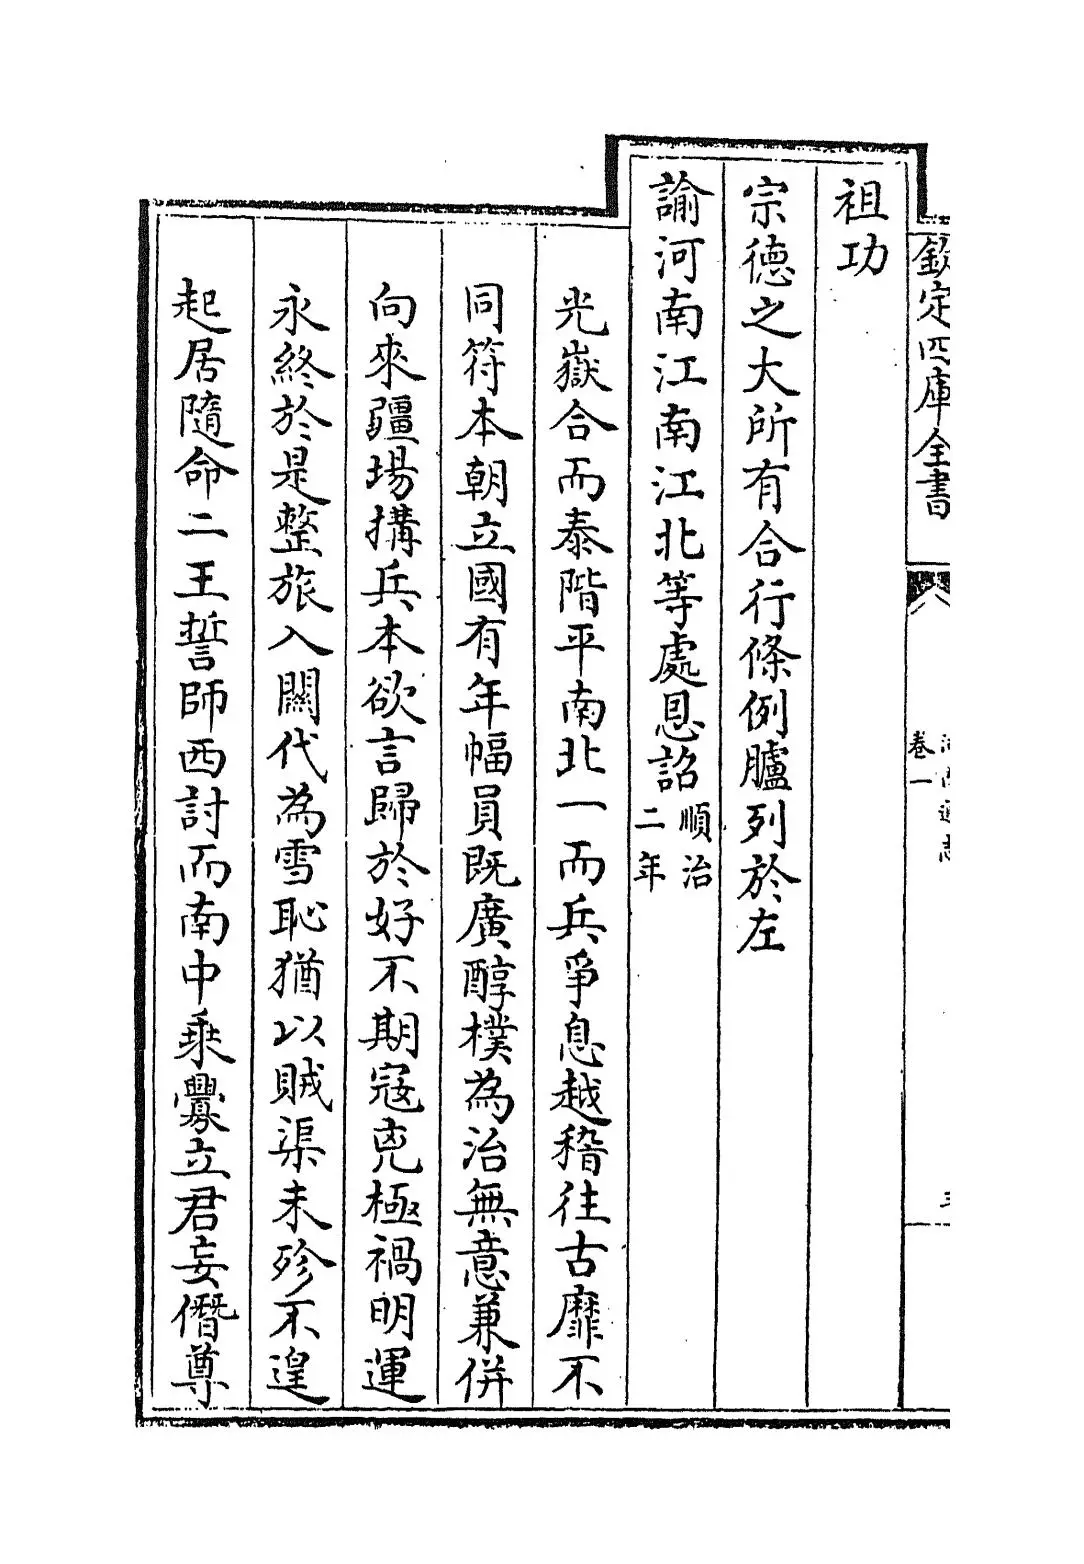 欽定四庫全書
卷一
祖功
宗德之大所有合行條例臚列於左
諭河南江南江北等處恩詔順治二年
光嶽合而泰階平南北一而兵爭息越稽往古靡不
同符本朝立國有年幅員既廣醇樸為治無意兼併
向來疆場搆兵本欲言歸於好不期寇兇極禍明運
永終於是整旅入關代為雪恥猶以賊渠未殄不遑
起居隨命二王誓師西討而南中乘釁立君妄僭尊